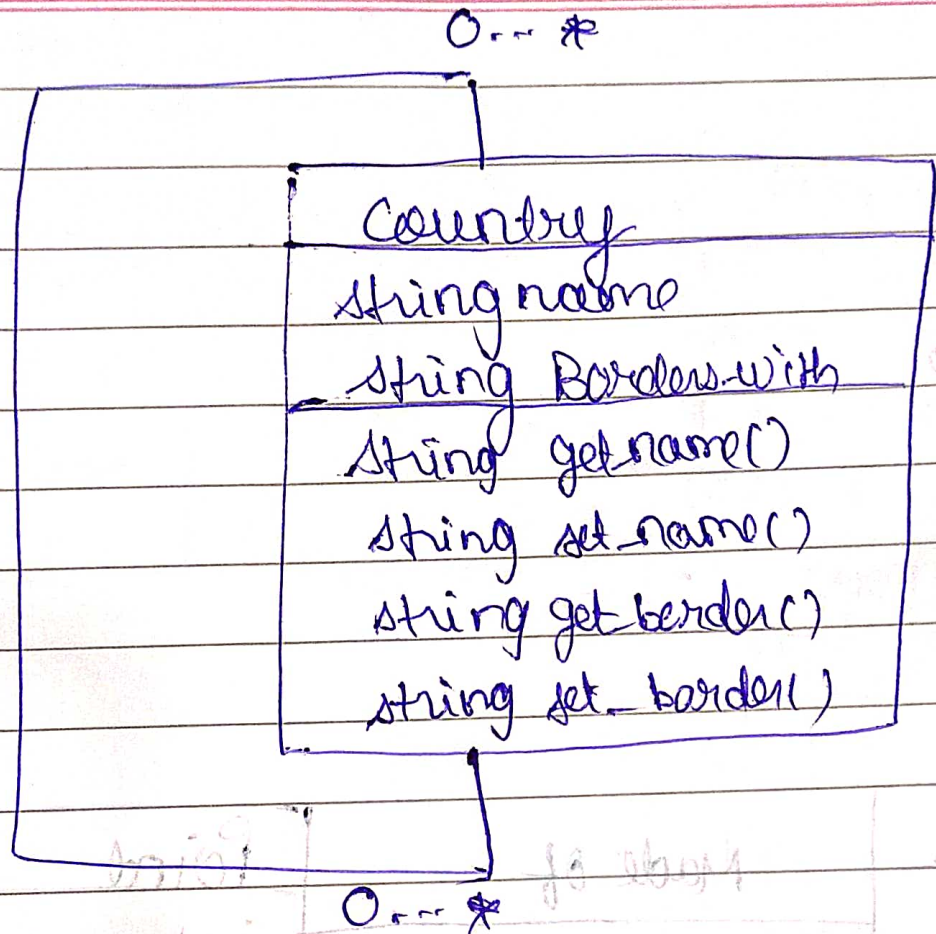 0...*
Country
string name
string Borders-with
string get_name()
string set_name()
string get_border()
string set_border()
0...*